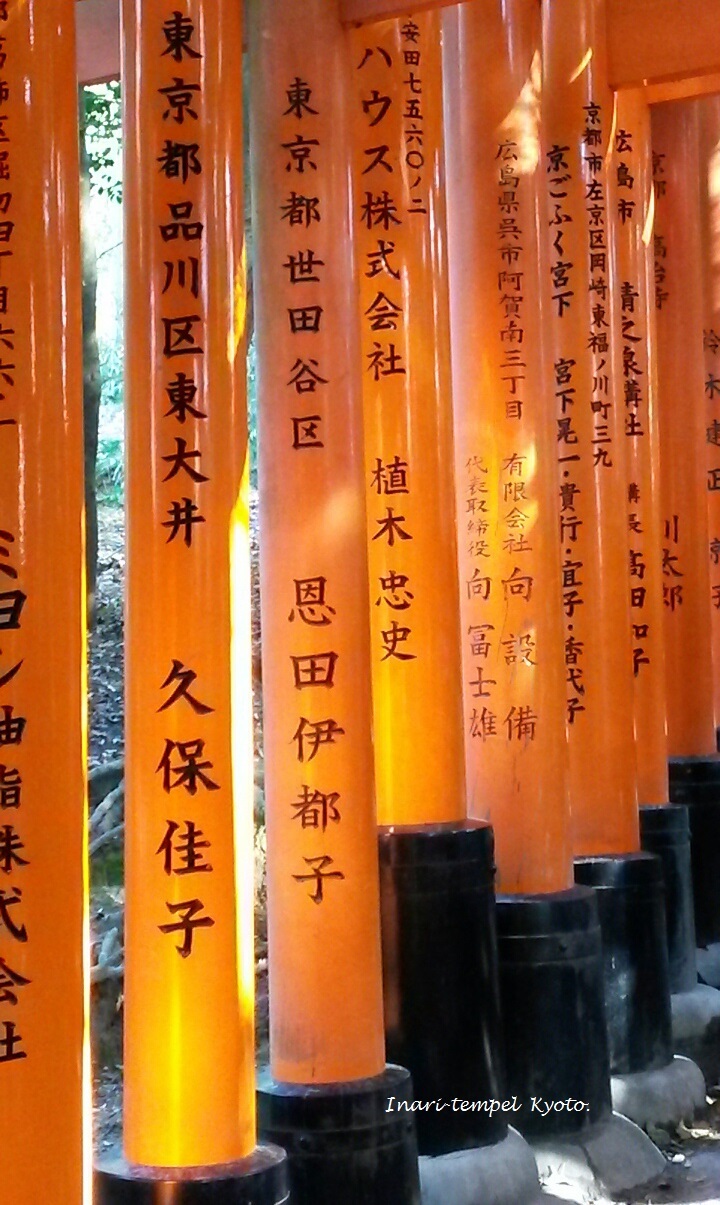 東京都品川区東大井 久保佳子
東京都世田谷区 恩田伊都子
安田七五六〇ノ二
ハウス株式会社 植木忠史
広島県呉市阿賀南三丁目
有限会社 向設備
代表取締役 向冨士雄
京都市左京区岡崎東福ノ川町三九
京ごふく宮下 宮下晃一・貴行・宜子・香代子
広島市
講長 高田和子
川太郎
ミヨシ油脂株式会社
Inari-tempel Kyoto.